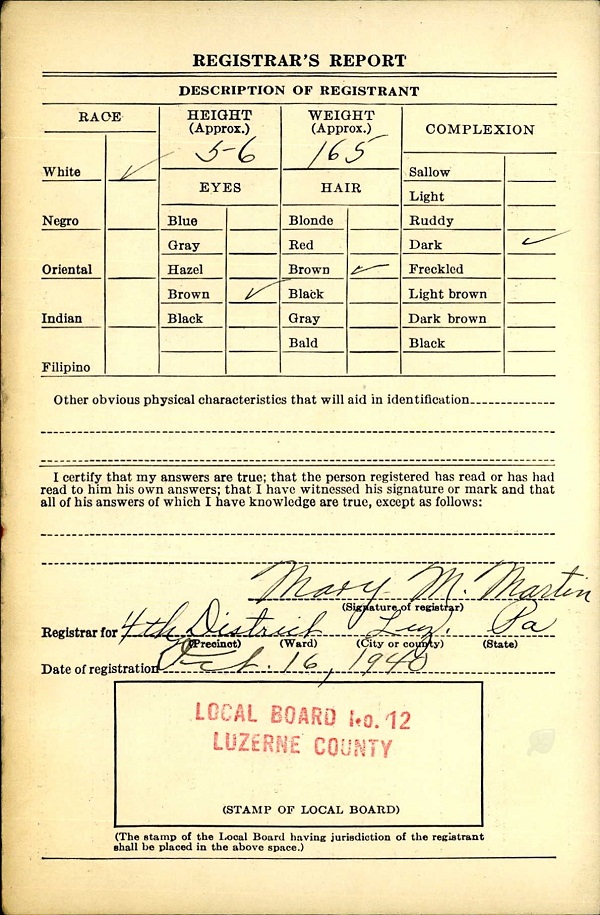 REGISTRAR'S REPORT
DESCRIPTION OF REGISTRANT
RACE
HEIGHT (Approx.)
WEIGHT (Approx.)
COMPLEXION
5-6
165
White ✓
Sallow
EYES
HAIR
Light
Negro
Blue
Blonde
Ruddy
Gray
Red
Dark ✓
Oriental
Hazel
Brown ✓
Freckled
Brown ✓
Black
Light brown
Indian
Black
Gray
Dark brown
Bald
Black
Filipino
Other obvious physical characteristics that will aid in identification
I certify that my answers are true; that the person registered has read or has had
read to him his own answers; that I have witnessed his signature or mark and that
all of his answers of which I have knowledge are true, except as follows:
Mary M. Martin
(Signature of registrar)
Registrar for 4th District Luz. Pa
(Precinct) (Ward) (City or county) (State)
Date of registration Oct. 16, 1940
LOCAL BOARD No. 12
LUZERNE COUNTY
(STAMP OF LOCAL BOARD)
(The stamp of the Local Board having jurisdiction of the registrant
shall be placed in the above space.)